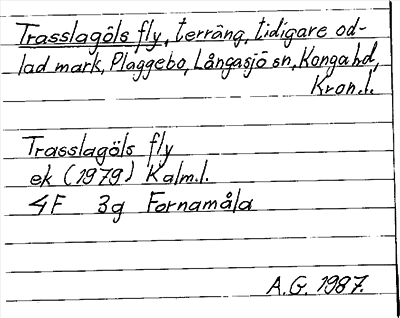 Trasslagöls fly, terräng, tidigare od-
lad mark, Plaggebo, Långasjö sn, Konga hd,
Kron.l.
Trasslagöls fly
ek (1979) Kalm.l.
4F 3g Fornamåla
A.G. 1987.